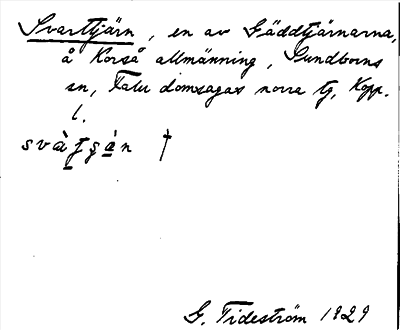 Svarttjärn, en av Gäddtjärnarna,
å Korså allmänning, Sundborns
sn, Falu domsagas norra tg, Kopp.
l.
svàt̠ṣà̠n †
G. Tideström 1929